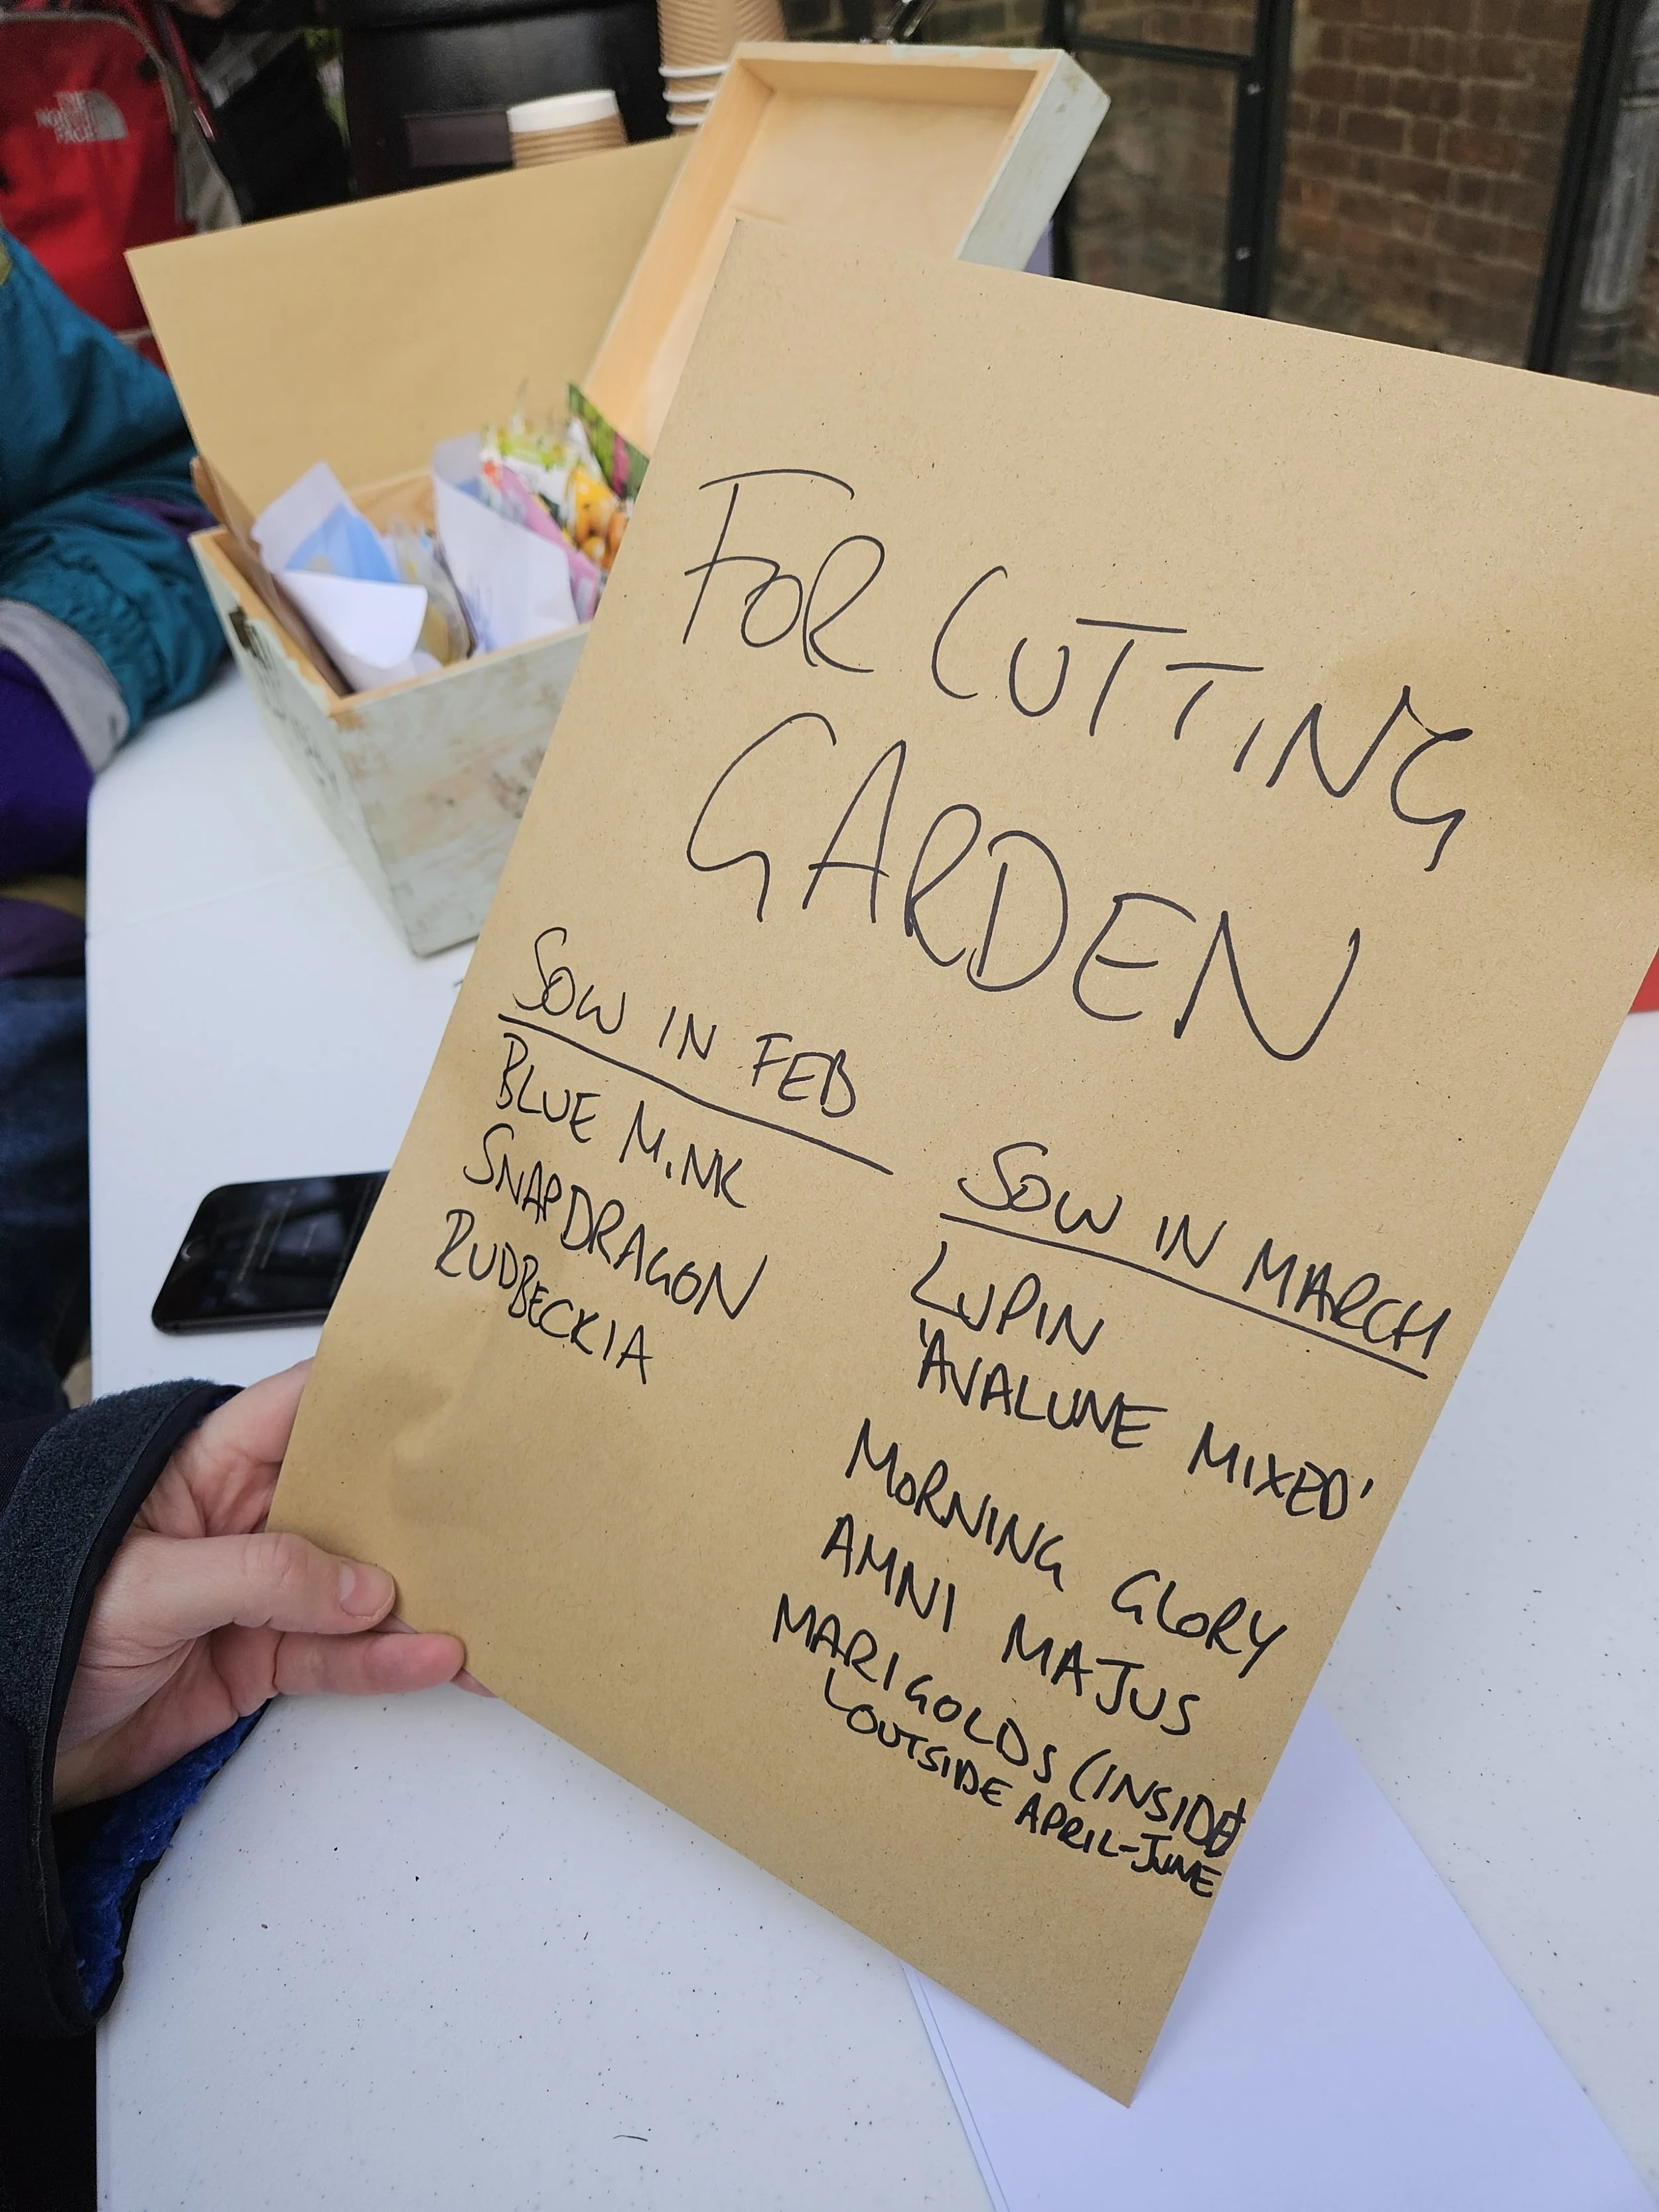 THE
NORTH
FACE
FOR CUTTING
GARDEN
SOW IN FEB
BLUE MINK
SNAPDRAGON
RUDBECKIA
SOW IN MARCH
LUPIN
'AVALUNE MIXED'
MORNING GLORY
AMNI MAJUS
MARIGOLDS (INSIDE
OUTSIDE APRIL-JUNE